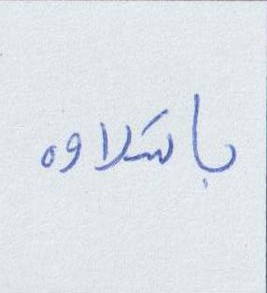 باتلاوه